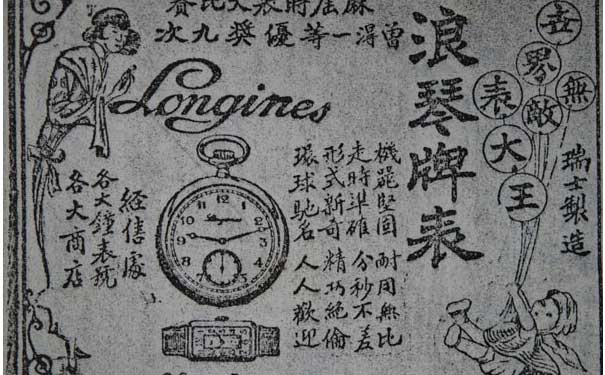 歷屆時表大比賽
曾得一等優獎九次
浪琴牌表
世界無敵
表大王
瑞士製造
Longines
機器堅固 耐用無比
走時準確 分秒不差
形式新奇 精巧絕倫
環球馳名 人人歡迎
經售處
各大鐘表號
各大商店